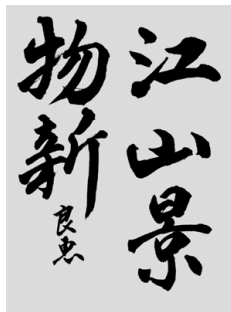 江山景
物新
良惠